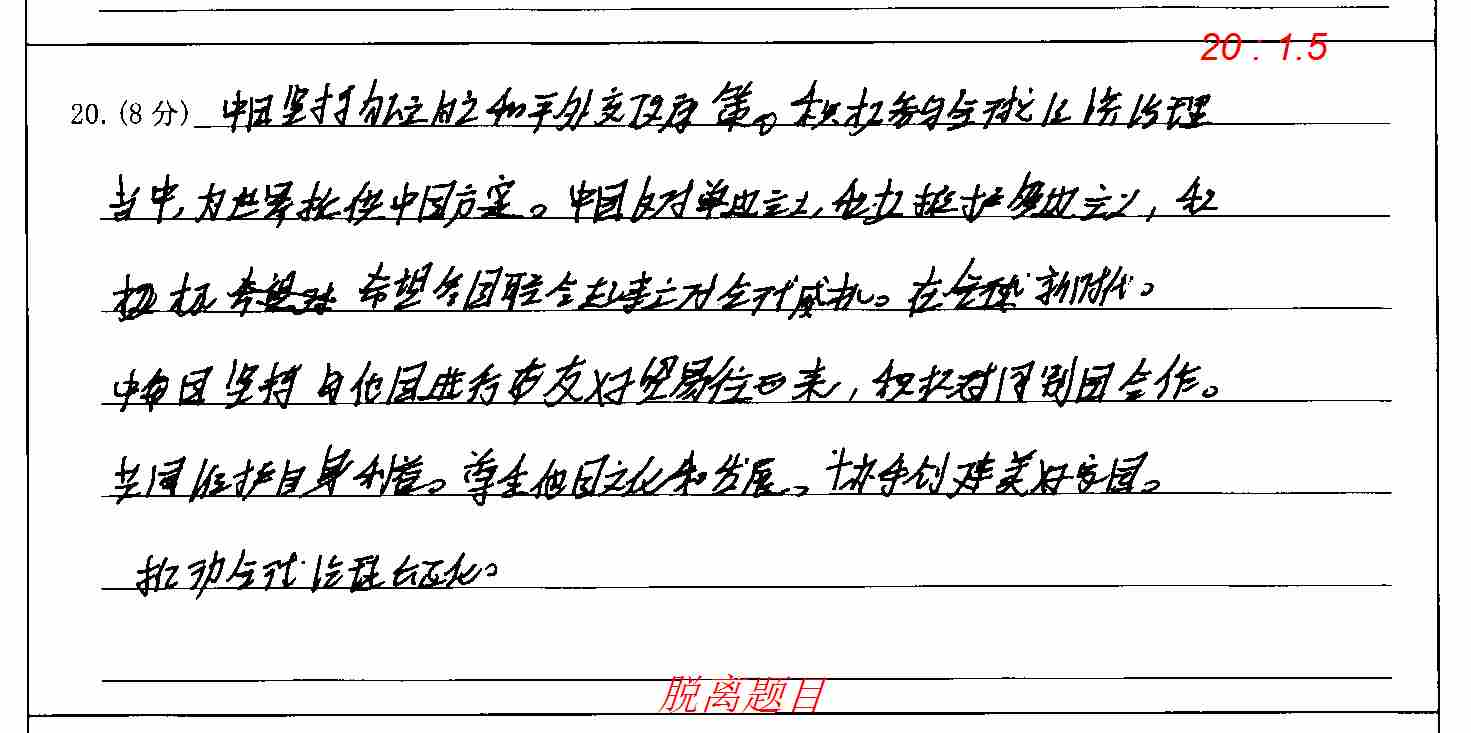 20 : 1.5
20. (8 分) 中国坚持独立自主和平外交政策。积极参与全球化经济治理
当中,为世界提供中国方案。中国反对单边主义,大力维护多边主义,积
极 希望各国联合起来应对全球危机。在全球新时代。
中国坚持与他国进行友好贸易往来,积极对同别国合作。
共同维护自身利益。尊重他国文化和发展。协手创建美好家园。
推动全球治理公正化。
脱离题目